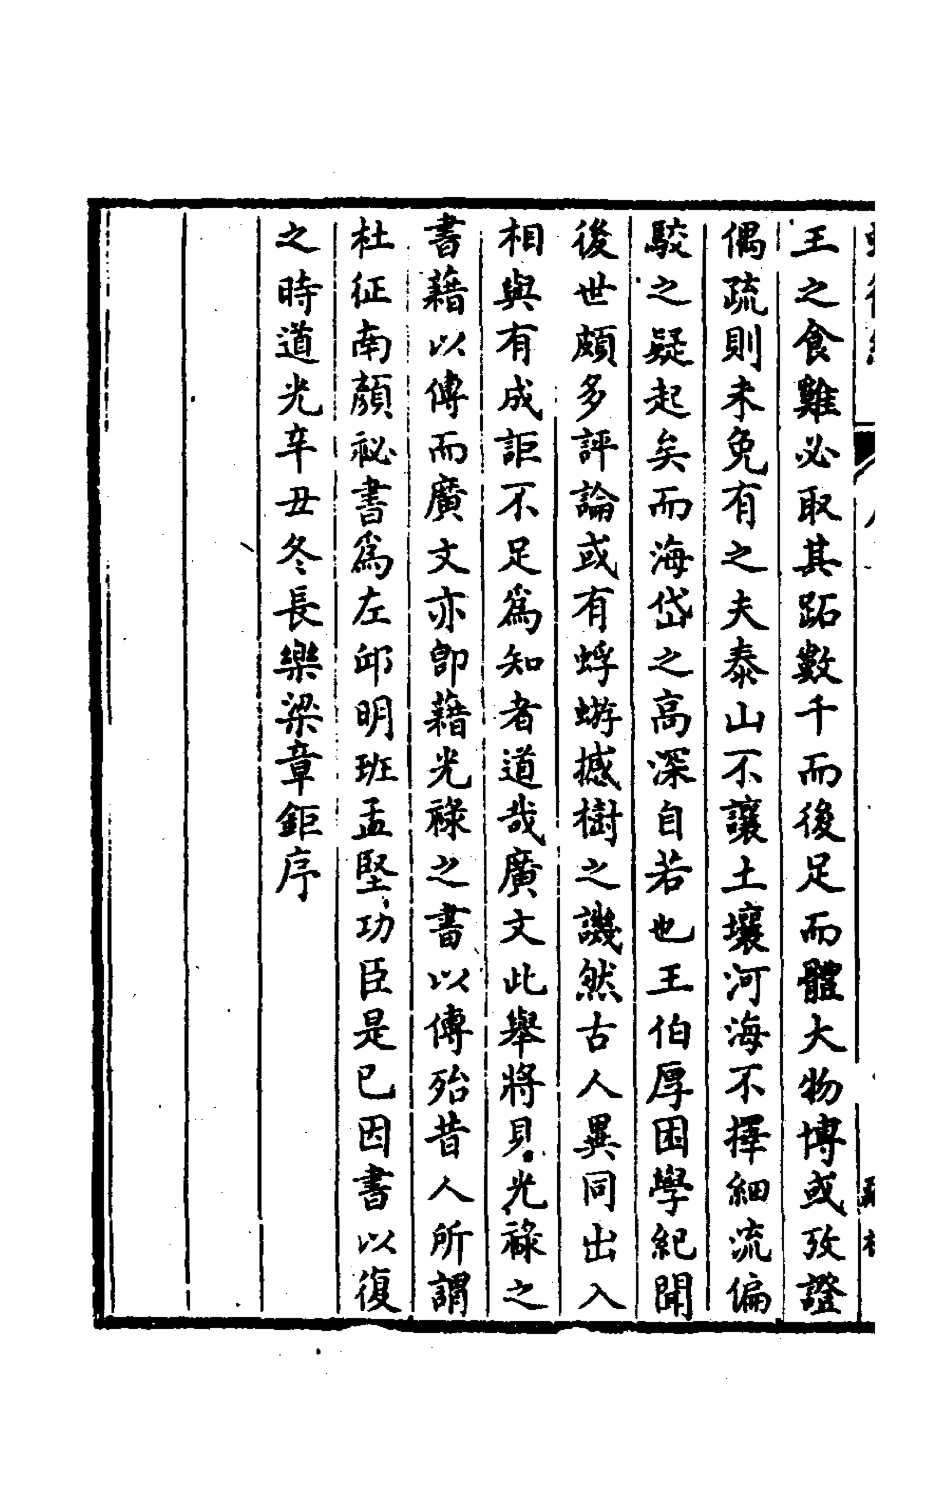 王之食雞必取其跖數千而後足而體大物博或攷證
偶疏則未免有之夫泰山不讓土壤河海不擇細流偏
駮之疑起矣而海岱之高深自若也王伯厚困學紀聞
後世頗多評論或有蜉蝣撼樹之譏然古人異同出入
相與有成詎不足爲知者道哉廣文此舉將見光祿之
書藉以傳而廣文亦卽藉光祿之書以傳殆昔人所謂
杜征南顏祕書爲左邱明班孟堅功臣是已因書以復
之時道光辛丑冬長樂梁章鉅序